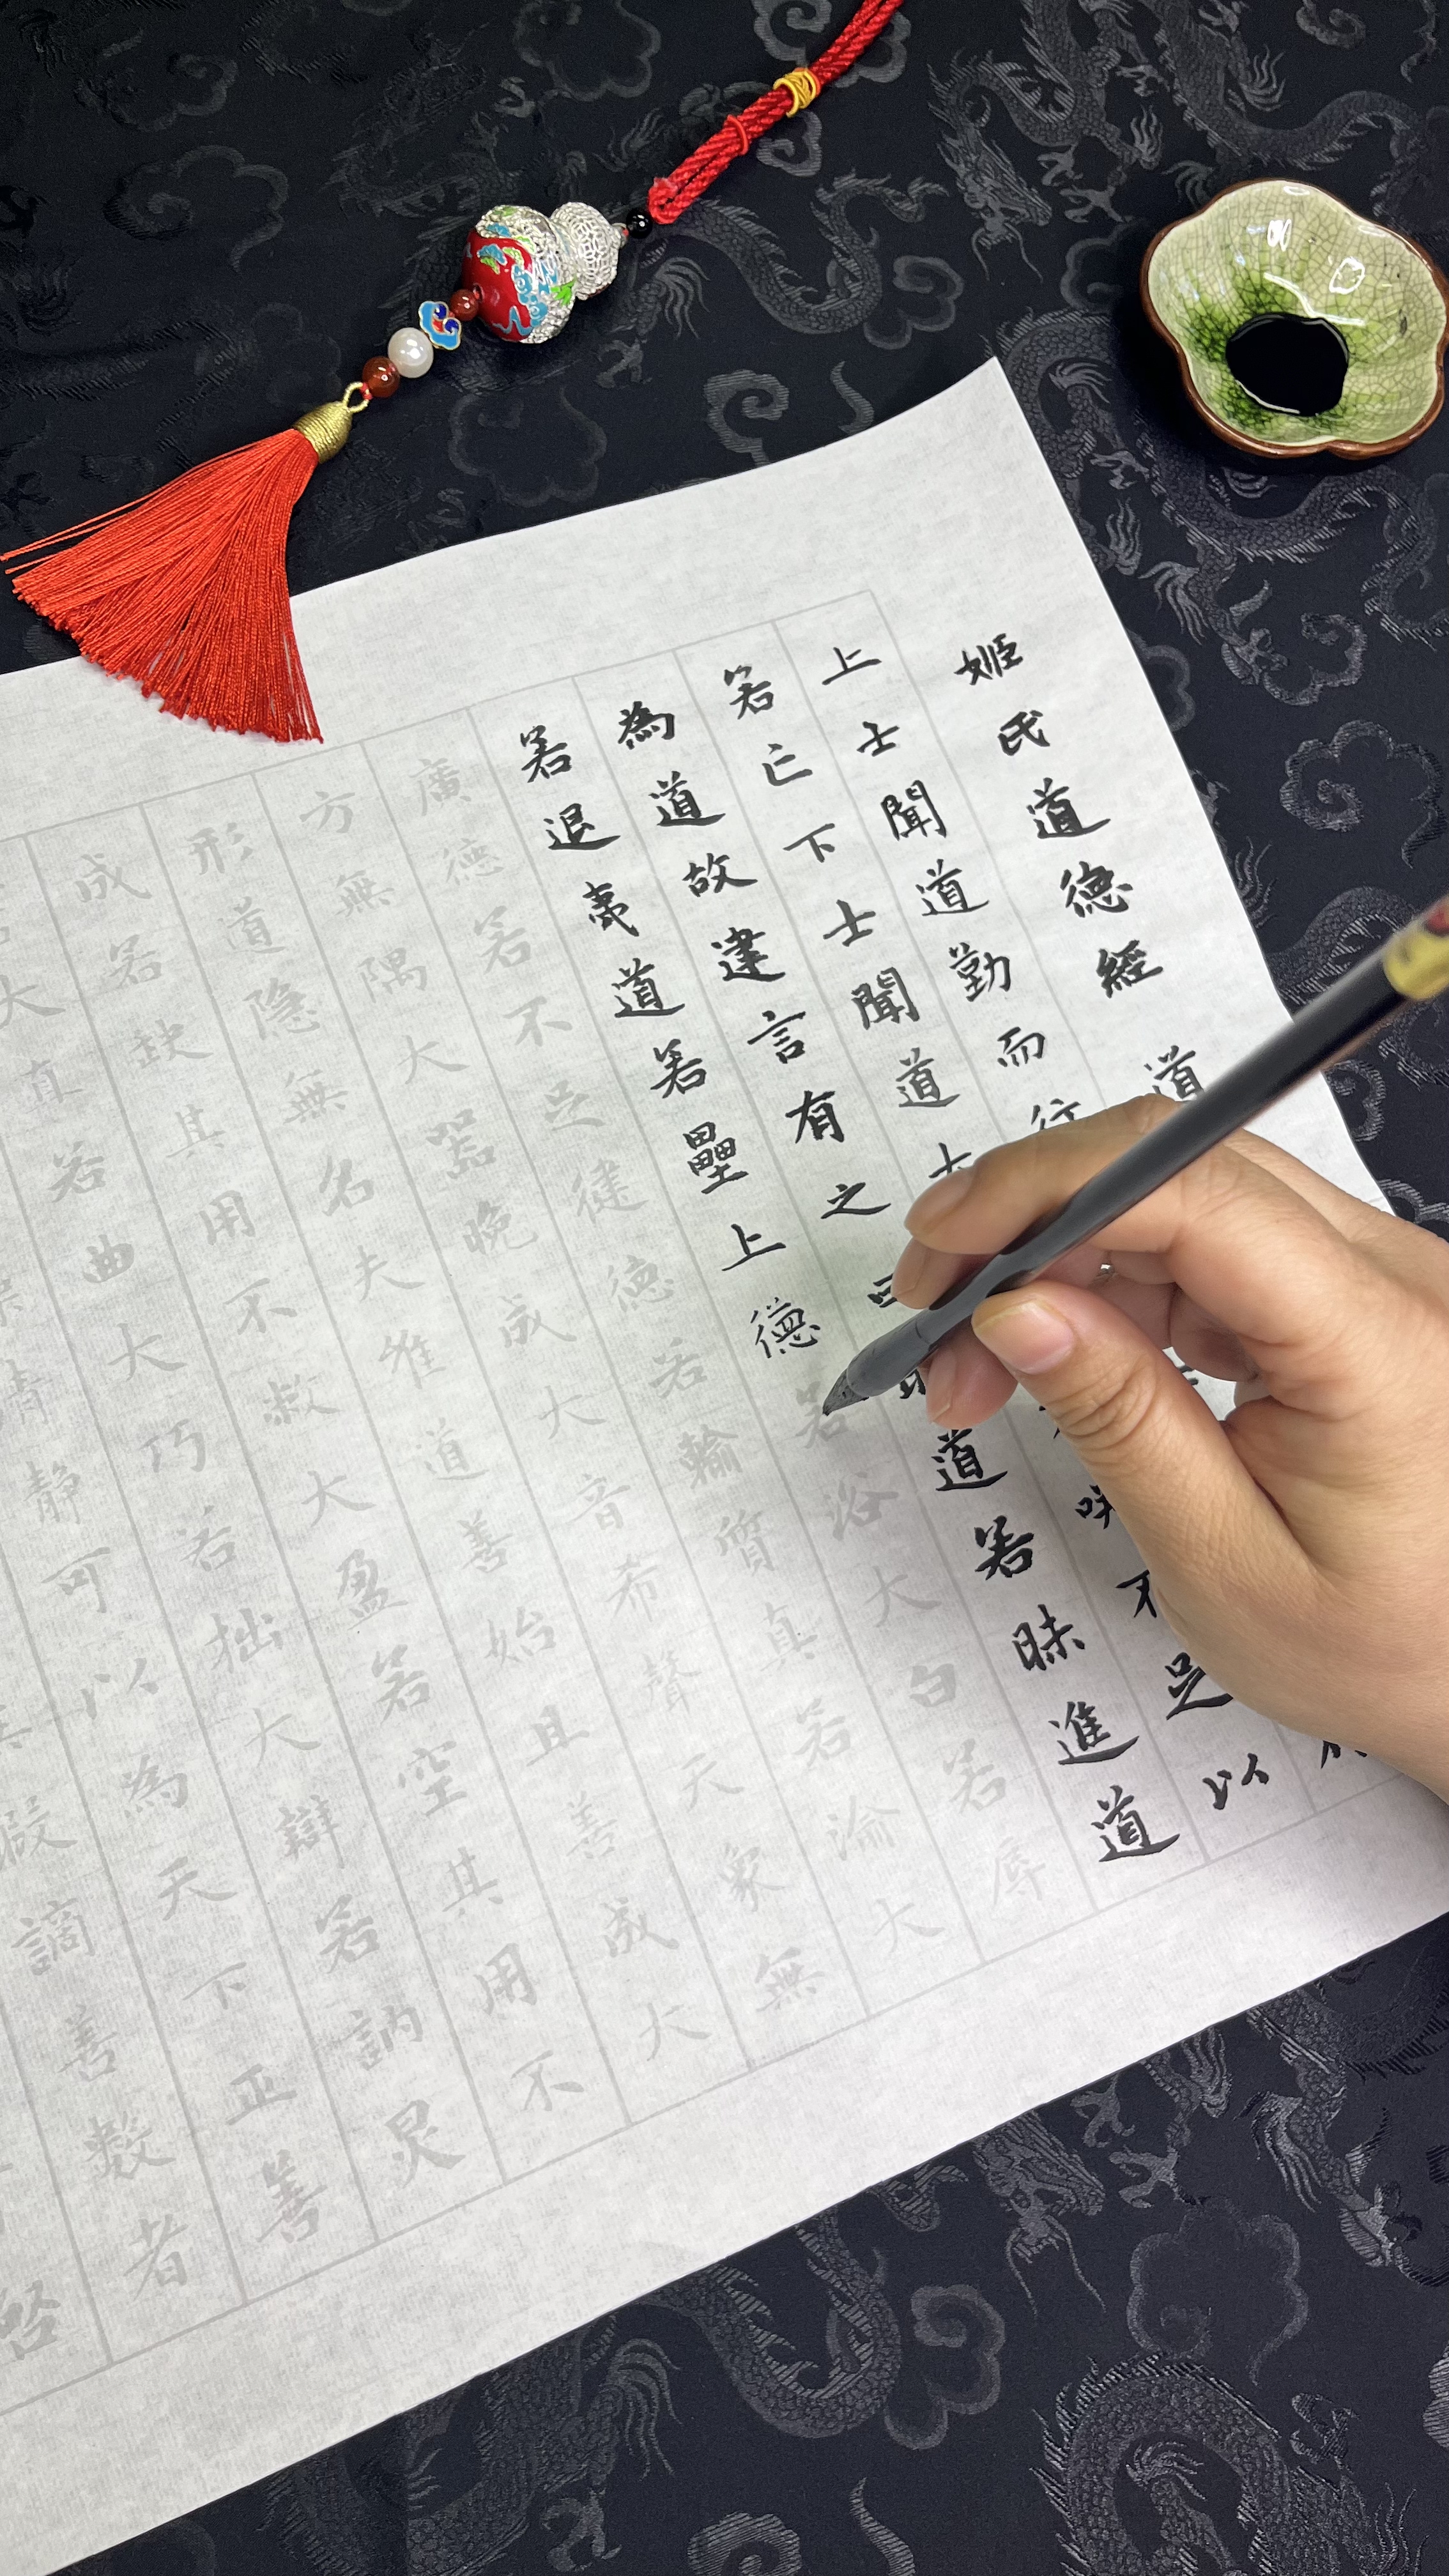 姬氏道德經 道
上士聞道勤而行
若亡下士聞道大 咲不足以
為道故建言有之曰明道若昧進道
若退夷道若壘上德若浴大白若辱
廣德若不足 德若輸質真若渝大
方無隅大器晚成大音希聲天象無
形道隱無名夫唯道善始且善成大
成若缺其用不敝大盈若 其用不
大直若曲大巧若拙大辯若訥炅
靜可以為天下正善
謫善數者